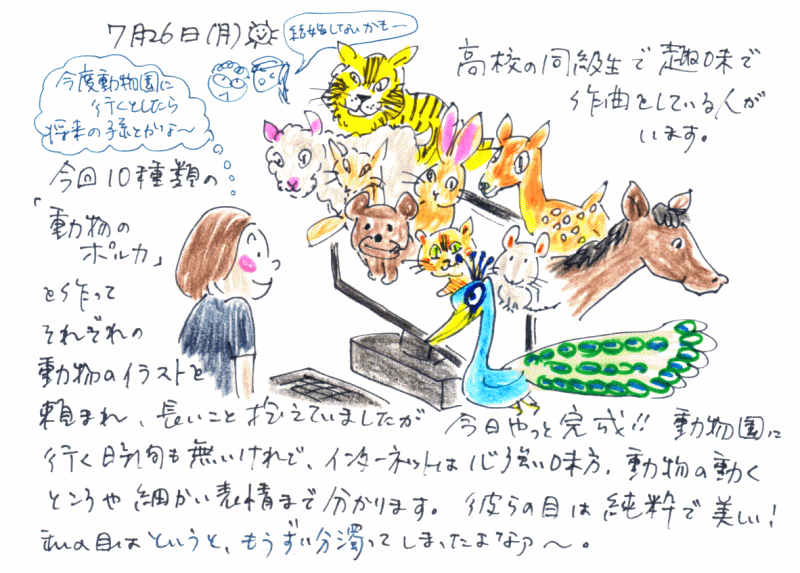 7月26日(月)
結婚しないかもー
今度動物園に
行くとしたら
将来の孫とかな〜
高校の同級生で趣味で
作曲をしている人が
います。
今回10種類の
「動物の
ポルカ」
を作って
それぞれの
動物のイラストを
頼まれ、長いこと抱えていましたが 今日やっと完成!! 動物園に
行く時間も無いけれど、インターネットは心強い味方。動物の動く
ところや細かい表情まで分かります。 彼らの目は純粋で美しい!
私の目はというと、もうずい分濁ってしまったよなァ〜。